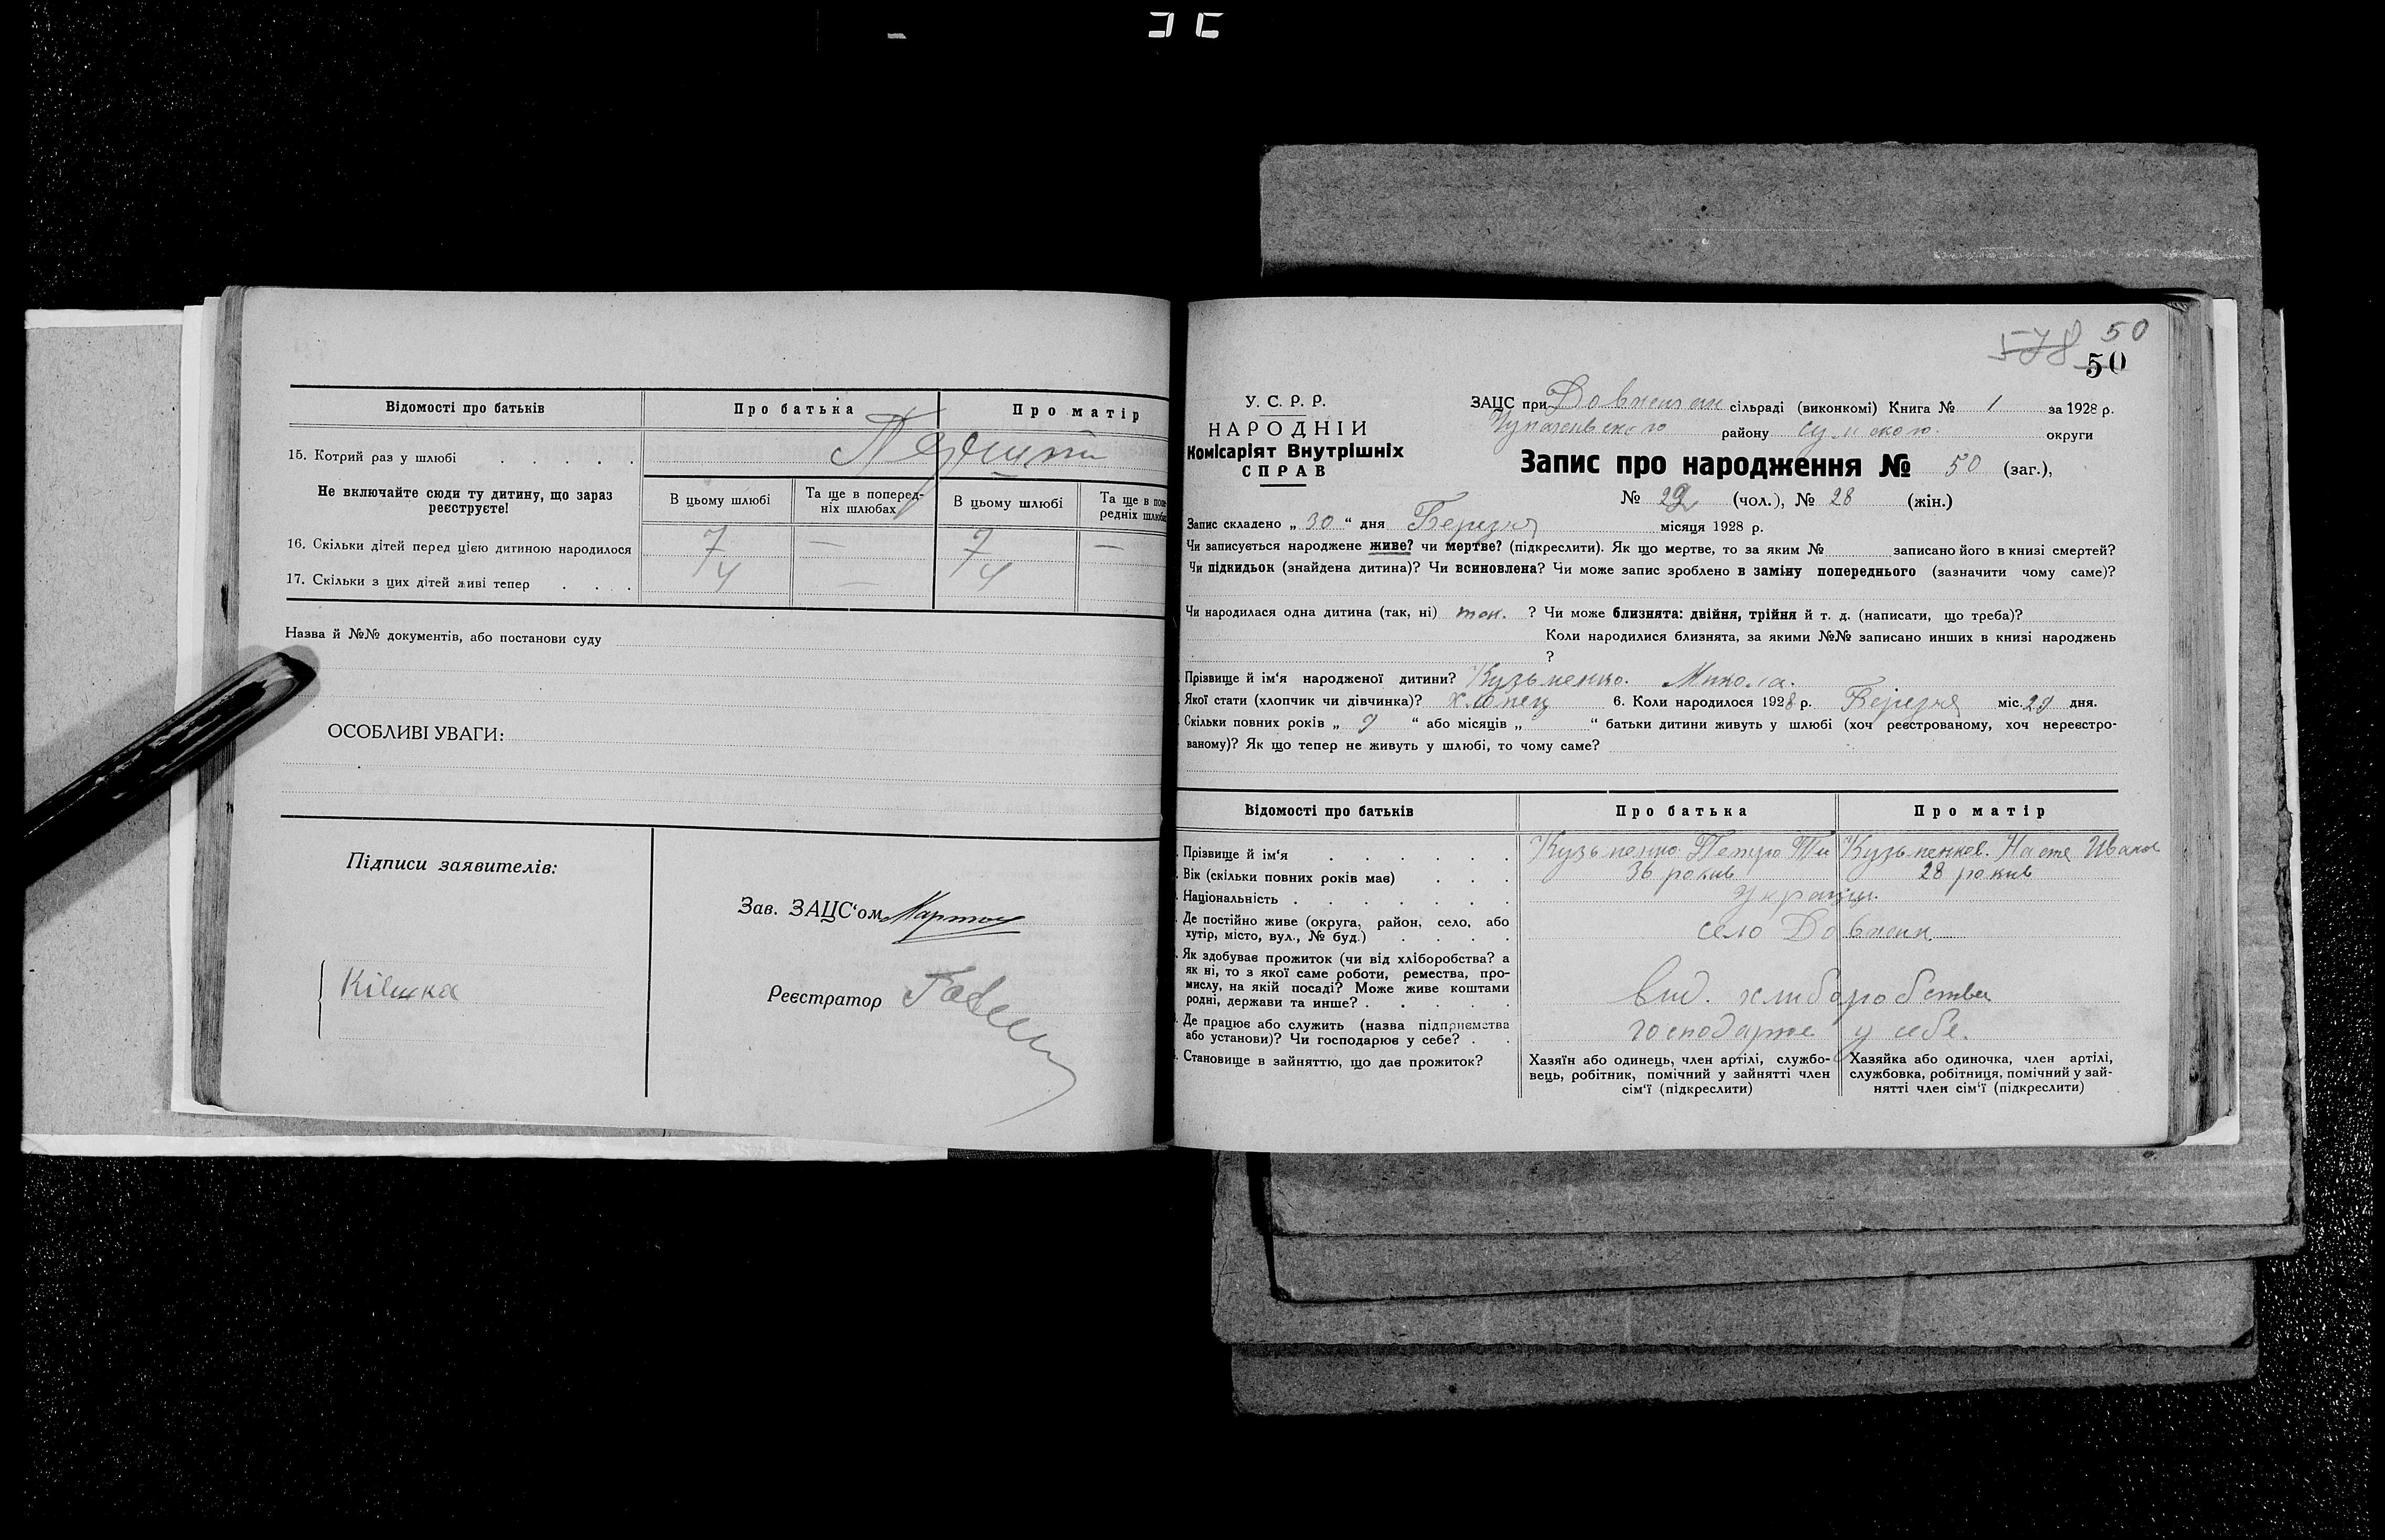 Відомості про батьків Про батька Про матір
15. Котрий раз у шлюбі . . . . . Перший
Не включайте сюди ту дитину, що зараз реєструєте!
В цьому шлюбі Та ще в поперед-ніх шлюбах В цьому шлюбі Та ще в попе-редніх шлюбах
16. Скільки дітей перед цією дитиною народилося 7 — 7 —
17. Скільки з цих дітей живі тепер . . . 4 — 4
Назва й №№ документів, або постанови суду
ОСОБЛИВІ УВАГИ:
Підписи заявителів:
Зав. ЗАЦС'ом
Кішка
Реєстратор
578 50
50
У. С. Р. Р.
НАРОДНІЙ
Комісаріят Внутрішніх
СПРАВ
ЗАЦС при сільраді (виконкомі) Книга № 1 за 1928 р.
району Сумского округи
Запис про народження № 50 (заг.),
№ 22 (чол.), № 28 (жін.)
Запис складено „ 30 “ дня Березня місяця 1928 р.
Чи записується народжене живе? чи мертве? (підкреслити). Як що мертве, то за яким № записано його в книзі смертей?
Чи підкидьок (знайдена дитина)? Чи всиновлена? Чи може запис зроблено в заміну попереднього (зазначити чому саме)?
Чи народилася одна дитина (так, ні) так. ? Чи може близнята: двійня, трійня й т. д. (написати, що треба)?
Коли народилися близнята, за якими №№ записано инших в книзі народжень
?
Прізвище й ім'я народженої дитини? Кузьменко. Микола.
Якої стати (хлопчик чи дівчинка)? хлопец 6. Коли народилося 1928 р. Березня міс. 29 дня.
Скільки повних років „ 9 “ або місяців „ “ батьки дитини живуть у шлюбі (хоч реєстрованому, хоч нереєстро-
ваному)? Як що тепер не живуть у шлюбі, то чому саме?
Відомості про батьків Про батька Про матір
Прізвище й ім'я . . . . . . Кузьменко Петро Ти Кузьменкова Наст Иван
Вік (скільки повних років має) . . . 36 рокив 28 рокив
Національність . . . . . . . Українці.
Де постійно живе (округа, район, село, або
хутір, місто, вул., № буд.) . . . . село Довжик
Як здобуває прожиток (чи від хліборобства? а
як ні, то з якої саме роботи, ремества, про-
мислу, на якій посаді? Може живе коштами
родні, держави та инше? . . . . . вид. хлиборобства
Де працює або служить (назва підприємства
або установи)? Чи господарює у себе? . . господарює у себе.
Становище в зайняттю, що дає прожиток?
Хазяїн або одинець, член артілі, службо-
вець, робітник, помічний у зайнятті член
сім'ї (підкреслити)
Хазяйка або одиночка, член артілі,
службовка, робітниця, помічний у зай-
нятті член сім'ї (підкреслити)